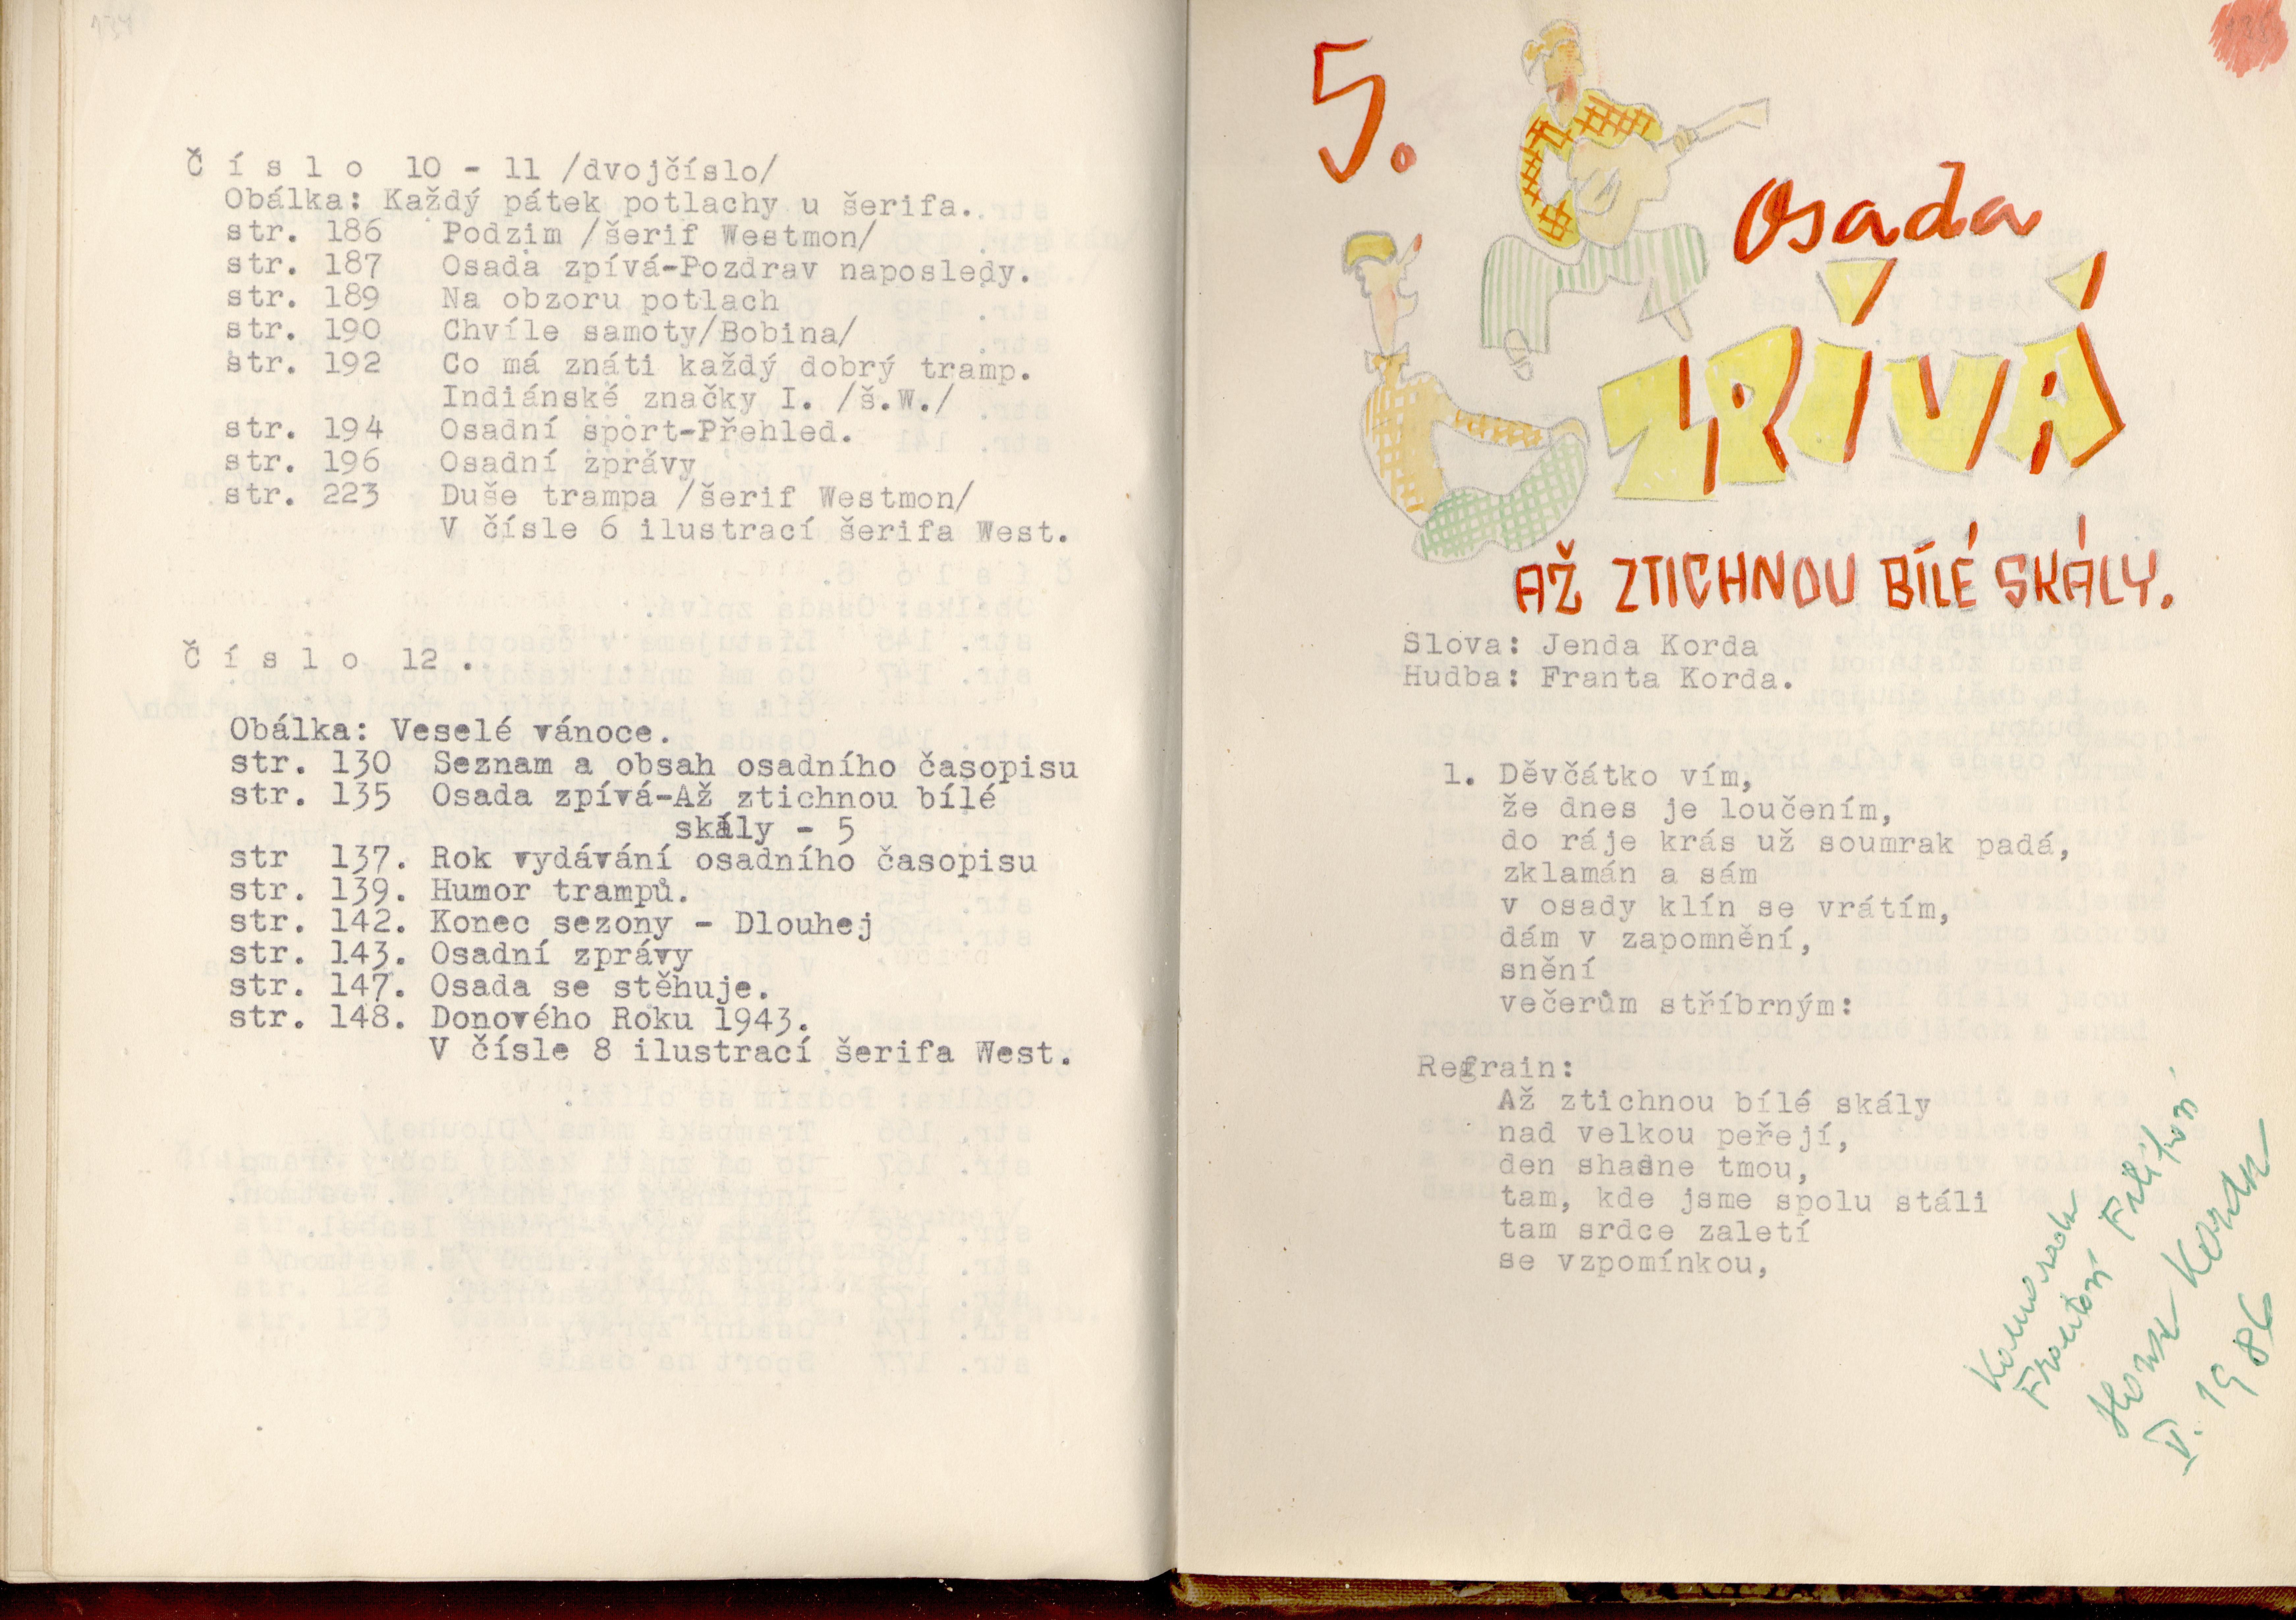 134
Č í s l o 10 - 11 /dvojčíslo/
Obálka: Každý pátek potlachy u šerifa.
str. 186 Podzim /šerif Westmon/
str. 187 Osada zpívá-Pozdrav naposledy.
str. 189 Na obzoru potlach
str. 190 Chvíle samoty/Bobina/
str. 192 Co má znáti každý dobrý tramp.
Indiánské značky I. /š.W./
str. 194 Osadní sport-Přehled.
str. 196 Osadní zprávy
str. 223 Duše trampa /šerif Westmon/
V čísle 6 ilustrací šerifa West.
Č í s l o 12 .
Obálka: Veselé vánoce.
str. 130 Seznam a obsah osadního časopisu
str. 135 Osada zpívá-Až ztichnou bílé
skály - 5
str 137. Rok vydávání osadního časopisu
str. 139. Humor trampů.
str. 142. Konec sezony - Dlouhej
str. 143. Osadní zprávy
str. 147. Osada se stěhuje.
str. 148. Donového Roku 1943.
V čísle 8 ilustrací šerifa West.
135
5.
Osada
ZPÍVÁ
AŽ ZTICHNOU BÍLÉ SKÁLY.
Slova: Jenda Korda
Hudba: Franta Korda.
1. Děvčátko vím,
že dnes je loučením,
do ráje krás už soumrak padá,
zklamán a sám
v osady klín se vrátím,
dám v zapomnění,
snění
večerům stříbrným:
Refrain:
Až ztichnou bílé skály
nad velkou peřejí,
den shasne tmou,
tam, kde jsme spolu stáli
tam srdce zaletí
se vzpomínkou,
Kamarádu
Korda
V. 1986